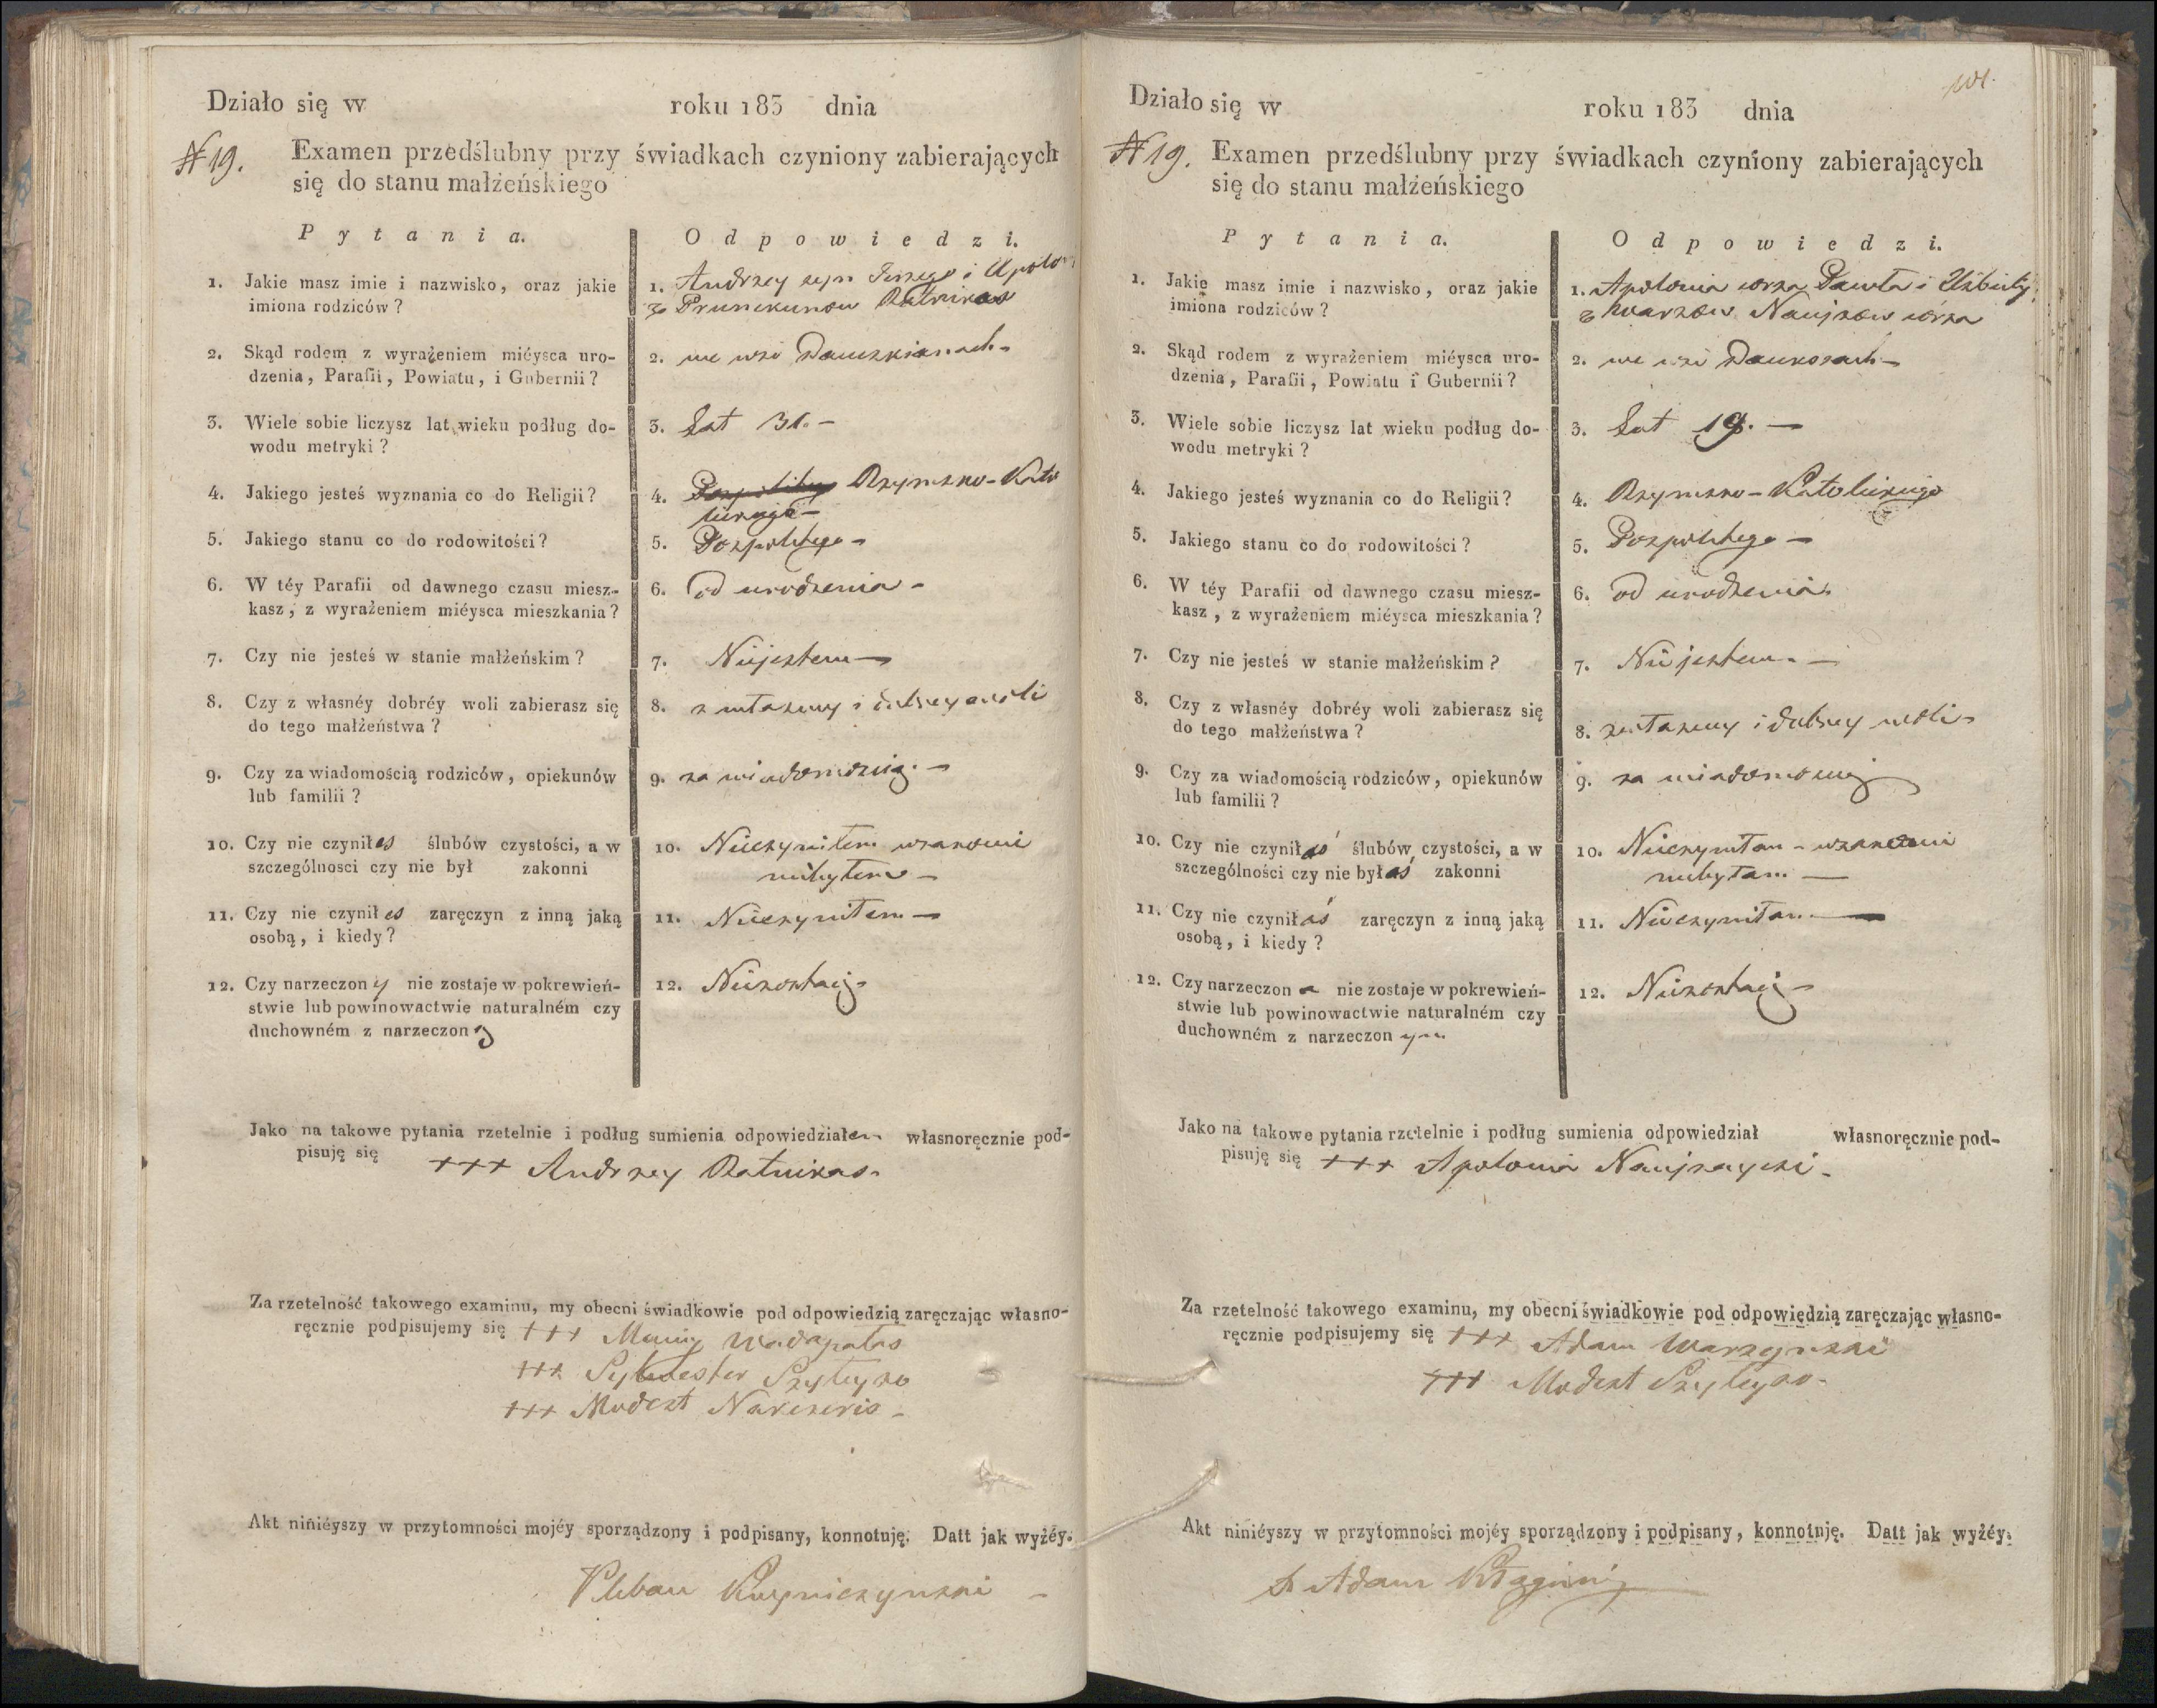 Działo się w roku 183 dnia
N 19. Examen przedślubny przy świadkach czyniony zabierających
się do stanu małżeńskiego
Pytania. Odpowiedzi.
1. Jakie masz imie i nazwisko, oraz jakie
imiona rodziców?
1. Andrzey syn Jerzego i Apolon
z Prunckunow Ratnikas
2. Skąd rodem z wyrażeniem miéysca uro-
dzenia, Parafii, Powiatu, i Gubernii?
2. we wsi Dauszkianach
3. Wiele sobie liczysz lat wieku podług do-
wodu metryki?
3. Lat 31. -
4. Jakiego jesteś wyznania co do Religii?
4. Pospolitego Rzymsko-Kato
lickiego -
5. Jakiego stanu co do rodowitości?
5. Pospolitego -
6. W téy Parafii od dawnego czasu miesz-
kasz, z wyrażeniem miéysca mieszkania?
6. od urodzenia -
7. Czy nie jesteś w stanie małżeńskim?
7. Niejestem -
8. Czy z własnéy dobréy woli zabierasz się
do tego małżeństwa?
8. z własney i dobrey woli
9. Czy za wiadomością rodziców, opiekunów
lub familii?
9. za wiadomością. -
10. Czy nie czyniłes ślubów czystości, a w
szczególnosci czy nie był zakonni
10. Nieczyniłem w zakonie
niebyłem -
11. Czy nie czynił es zaręczyn z inną jaką
osobą, i kiedy?
11. Nieczyniłem -
12. Czy narzeczon y nie zostaje w pokrewień-
stwie lub powinowactwie naturalném czy
duchowném z narzeczon ą
12. Niezostaię -
Jako na takowe pytania rzetelnie i podług sumienia odpowiedziałem własnoręcznie pod-
pisuję się +++ Andrzey Ratnikas.
Za rzetelność takowego examinu, my obecni świadkowie pod odpowiedzią zaręczając własno-
ręcznie podpisujemy się +++ Maciey Wadapalas
+++ Sylwester Szyleyko
+++ Modest Narkiewicz -
Akt niniéyszy w przytomności mojéy sporządzony i podpisany, konnotuję. Datt jak wyżéy.
Pleban
101.
Działo się w roku 183 dnia
N 19. Examen przedślubny przy świadkach czyniony zabierających
się do stanu małżeńskiego
Pytania. Odpowiedzi.
1. Jakie masz imie i nazwisko, oraz jakie
imiona rodziców?
1. Apolonia córka Pawła i Elżbiety
z Warzow córka
2. Skąd rodem z wyrażeniem miéysca uro-
dzenia, Parafii, Powiatu i Gubernii?
2. we wsi
3. Wiele sobie liczysz lat wieku podług do-
wodu metryki?
3. Lat 19. -
4. Jakiego jesteś wyznania co do Religii?
4. Rzymsko-Katolickiego
5. Jakiego stanu co do rodowitości?
5. Pospolitego -
6. W téy Parafii od dawnego czasu miesz-
kasz, z wyrażeniem miéysca mieszkania?
6. od urodzenia.
7. Czy nie jesteś w stanie małżeńskim?
7. Niejestem. -
8. Czy z własnéy dobréy woli zabierasz się
do tego małżeństwa?
8. z własney i dobrey woli -
9. Czy za wiadomością rodziców, opiekunów
lub familii?
9. za wiadomością
10. Czy nie czynił aś ślubów czystości, a w
szczególności czy nie był aś zakonni
10. Nieczyniłam - w zakonie
niebyłam -
11. Czy nie czynił aś zaręczyn z inną jaką
osobą, i kiedy?
11. Nieczyniłam -
12. Czy narzeczon a nie zostaje w pokrewień-
stwie lub powinowactwie naturalném czy
duchowném z narzeczon ym
12. Niezostaię -
Jako na takowe pytania rzetelnie i podług sumienia odpowiedział własnoręcznie pod-
pisuję się +++ Apolonia
Za rzetelność takowego examinu, my obecni świadkowie pod odpowiedzią zaręczając własno-
ręcznie podpisujemy się +++ Adam Warzynski
+++ Modest Szyleyko -
Akt niniéyszy w przytomności mojéy sporządzony i podpisany, konnotuję. Datt jak wyżéy.
X Adam